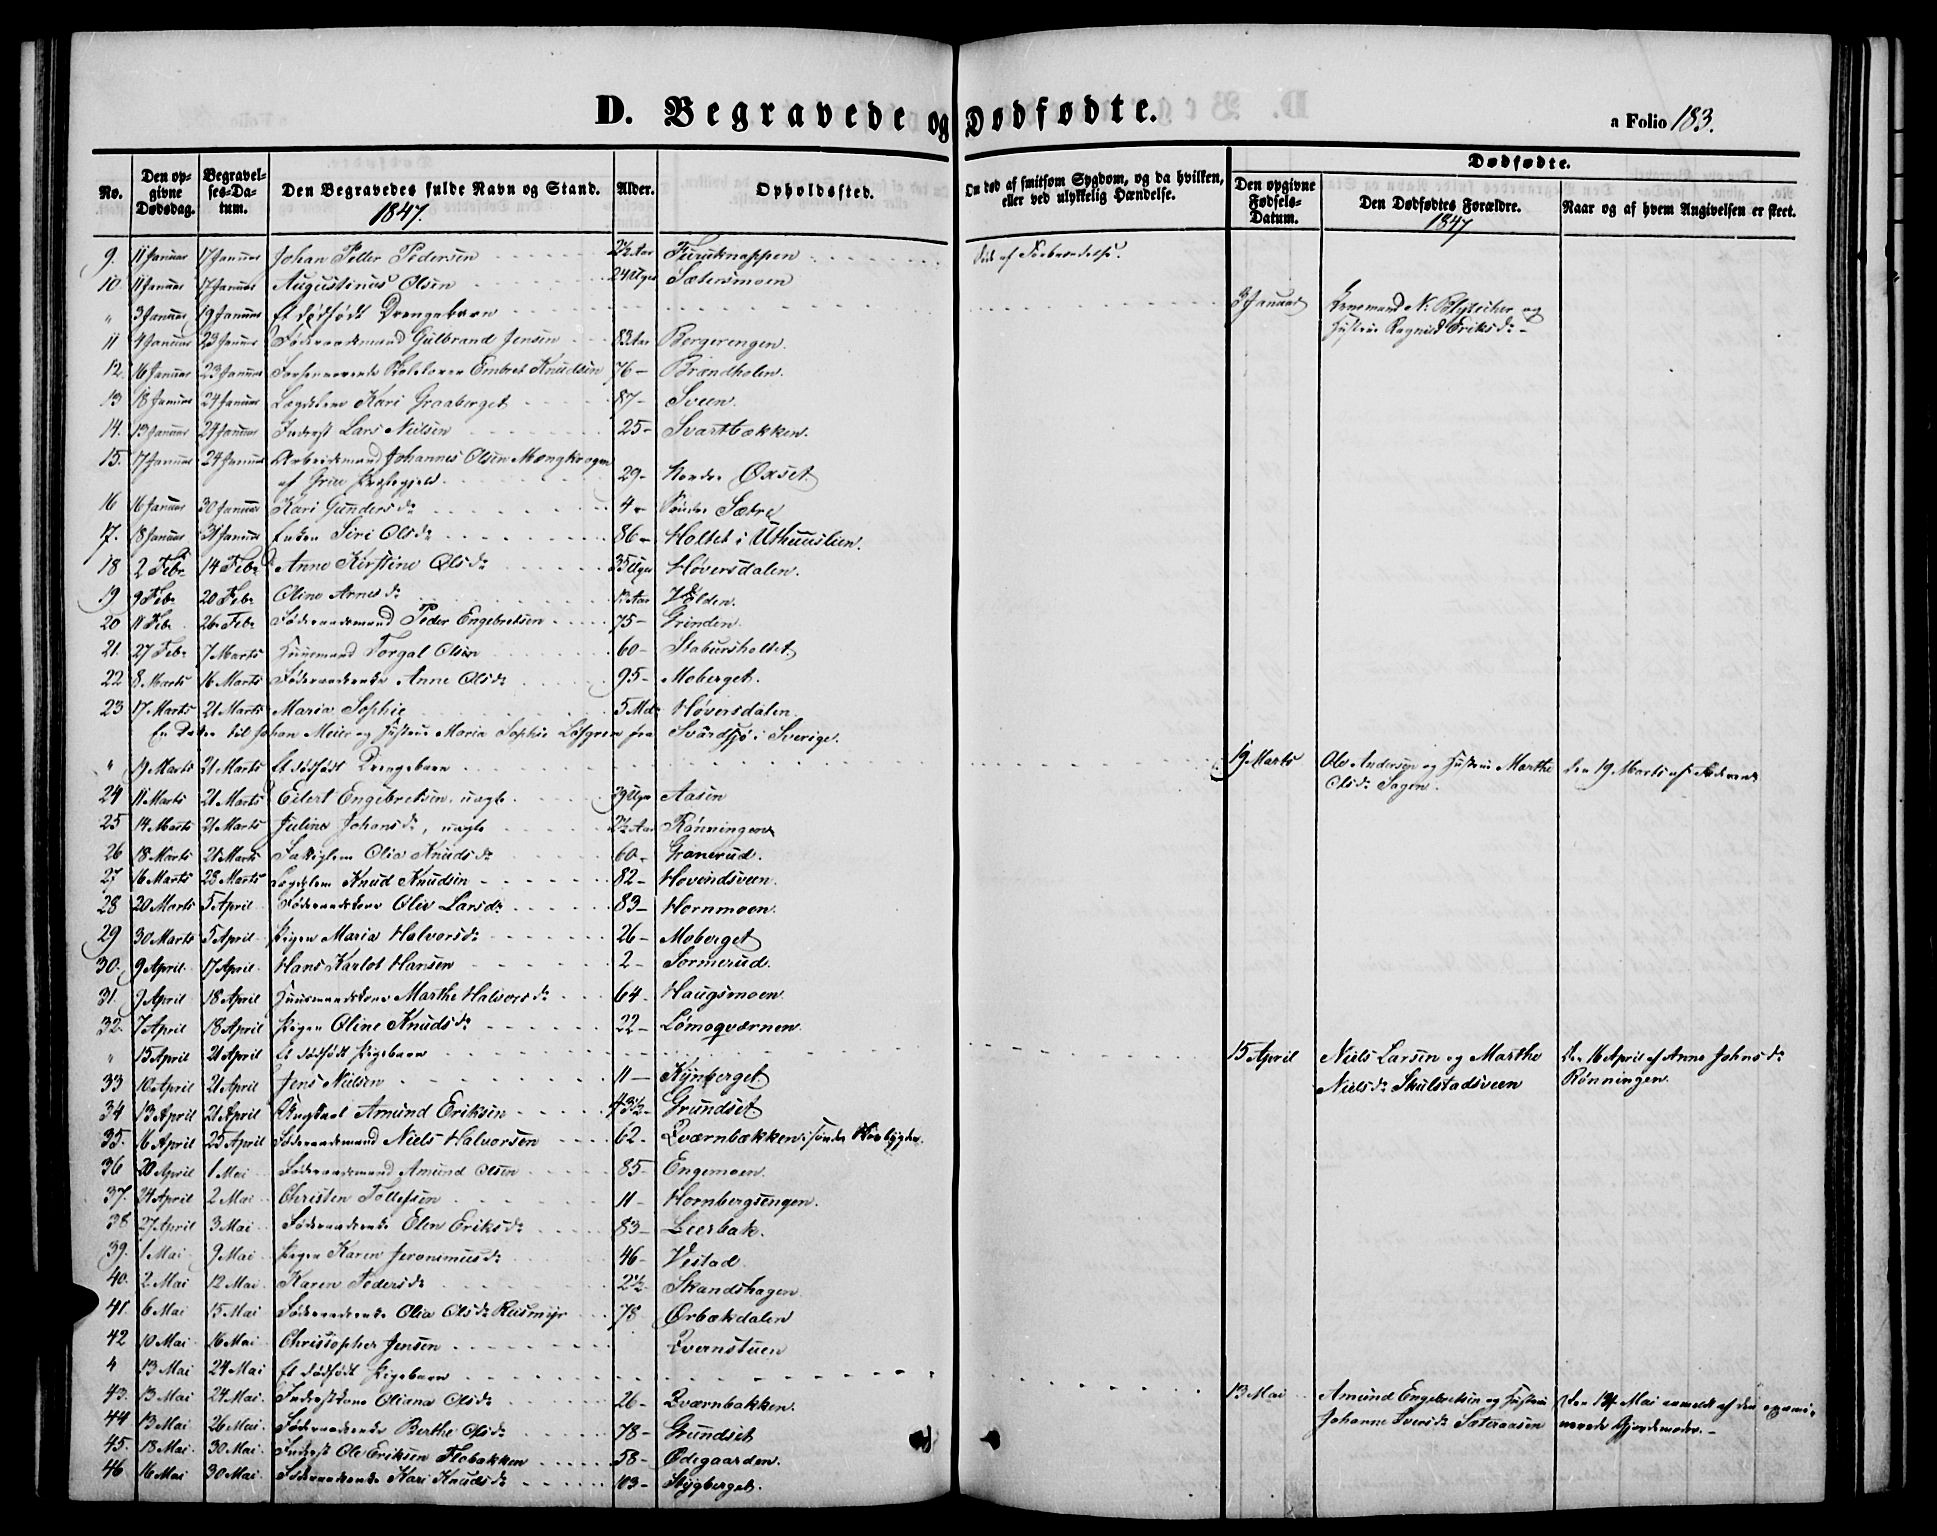 D. Begravede og Dødfødte.
a Folio 183.
No.
Den opgivne Dødsdag.
Begravelses-Datum.
Den Begravedes fulde Navn og Stand.
1847.
Alder.
Opholdssted.
Om død af smitsom Sygdom, og da hvilken, eller ved ulykkelig Hændelse.
Dødfødte.
Den opgivne Fødsels-Datum.
Den Dødfødtes Forældre.
1847
Naar og af hvem Angivelsen er skeet.
9. 11 Januar 17 Januar Johan Petter Pedersen 2½ Aar Furuknappen
10 11 Januar 17 Januar Augustinus Olsen 24 Uger Sætersmoen
" 3 Januar 19 Januar Et dødfødt Drengebarn 3 Januar
11 4 Januar 23 Januar Føderaadsmand Gulbrand Jensen 83 Aar Bergerengen.
12. 16 Januar 23 Januar Embret Knudsen 76 - Brændholen.
13 18 Januar 24 Januar Lægdslem Kari Graaberget 87 - Sveen.
14. 13 Januar 24 Januar Inderst Lars Nielsen 25 - Svartbækken.
15. 17 Januar 24 Januar Arbeidsmand Johannes Olsen Mongkrogen
af Grue Præstegjeld 29 - Nordre Oxset
16 16 Januar 30 Januar Kari Gundersdr 4 - Søndre Sætre
17. 18 Januar 31 Januar Enken Siri Olsdr 86 - Holtet i Uthuuslien.
18 2 Febr 14 Febr Anne Kirstine Olsdr 35 Uger Høversdalen.
19 9 Febr 20 Febr Oline Arnesdr Aar Volden.
20 11 Febr 26 Febr Føderaadsmand Peder Engebretsen 75 - Grinden
21. 27 Febr 7 Marts Huusmand Torgal Olsen 60 - Stabursholtet
22 8 Marts 16 Marts Føderaadsenke Anne Olsdr 95 - Moberget.
23 17 Marts 21 Marts Maria Sophie 5 Mdr Høversdalen.
En Datter til Johan Meier og Hustrue Maria Sophie Löfgren fra Svärdsjö i Sverige.
" 19 Marts 21 Marts Et dødfødt Drengebarn 19 Marts Ole Andersen og Hustrue Marthe Olsdr Sagen. Den 19 Marts af Faderen
24 11 Marts 21 Marts Eilert Engebretsen, uægte. 39 Uger Aasen
25 14 Marts 21 Marts Juline Johansdr, uægte 2½ Aar Rønningen
26 18 Marts 21 Marts Fattiglem Olia Knudsdr 60 - Granerud.
27 16 Marts 28 Marts Lægdslem Knud Knudsen 82 - Hovindsveen.
28 20 Marts 5 April Føderaadskone Olia Larsdr 83 - Hornmoen.
29 30 Marts 5 April Pigen Maria Halvorsdr 26 - Moberget
30. 9 April 17 April Hans Karlot Hansen 2 - Sormerud.
31. 9 April 18 April Huusmandskone Marthe Halvorsdr 64 - Haugsmoen.
32. 7 April 18 April Pigen Oline Knudsdr 22 - Lömoqværnen.
" 15 April 21 April Et dødfødt Pigebarn 15 April Niels Larsen og Marthe Nielsdr Skulstadsveen Den 16 April af Anne Johnsdr Rønningen.
33 10 April 21 April Jens Nielsen 11 - Kynberget
34 13 April 21 April Ungkarl Amund Eriksen 43½ - Grundset
35. 16 April 25 April Føderaadsmand Niels Halvorsen 62 - Qværnbækken i søndre
36 20 April 1 Mai Føderaadsmand Amund Olsen 85 - Engemoen.
37. 24 April 2 Mai Christen Tollefsen 11 - Hornbergsengen.
38 27 April 3 Mai Føderaadsenke Elen Eriksdr 83 - Leerbak.
39. 1 Mai 9 Mai Pigen Karen Jeronimusdr 46 - Vestad.
40. 2 Mai 12 Mai Karen Pedersdr 2½ - Skandshagen
41. 6 Mai 15 Mai Føderaadsenke Olia Olsdr Reismyr 78 Ørbækdalen
42 10 Mai 16 Mai Christopher Jensen Qvernstuen
" 13 Mai 24 Mai Et dødfødt Pigebarn 13 Mai Amund Engebretsen og Hustrue Johanne Iversdr Sæteraasen Den 14 Mai anmeldt af den examinerede Gjordemoder. -
43. 13 Mai 24 Mai. Inderstkone Oliana Olsdr 26 - Qværnbakken.
44 13 Mai 26 Mai. Føderaadsenke Berthe Olsdr 78 - Grundset
45. 18 Mai 30 Mai Inderst Ole Eriksen Flobakken 58 - Ødegaarden.
46 16 Mai 30 Mai Føderaadsenke Kari Knudsdr 103 - Stygberget.